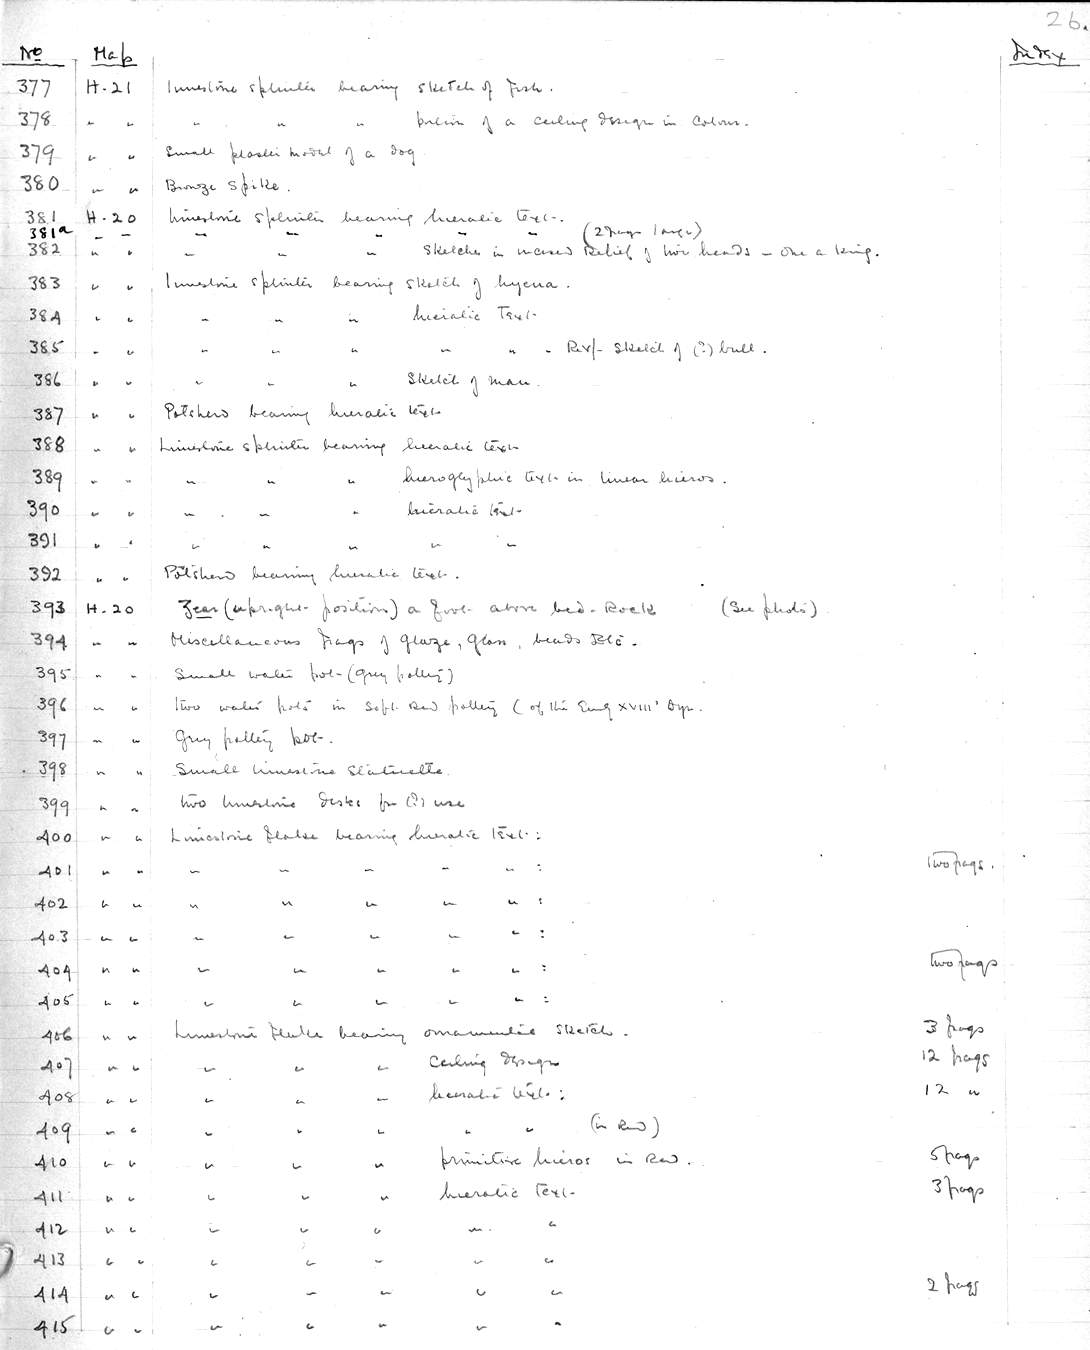 26.
No Map Index
377 H.21 Limestone splinter bearing sketch of Fish.
378 " " " " " portion of a ceiling design in Colour.
379 " " Small plaster model of a dog
380 " " Bronze Spike.
381 H.20 Limestone splinter bearing hieratic text.
381a " " " " " " " (2 frags large)
382 " " " " " Sketches in incised Relief of two heads – one a king.
383 " " Limestone splinter bearing sketch of hyena.
384 " " " " " hieratic Text
385 " " " " " " " . Rev/- Sketch of (?) bull.
386 " " " " " Sketch of man.
387 " " Potsherd bearing hieratic text
388 " " Limestone splinter bearing hieratic text
389 " " " " " hieroglyphic text in linear hieros.
390 " " " " " hieratic text
391 " " " " " " "
392 " " Potsherd bearing hieratic text.
393 H.20 (upright position) a foot above bed-Rock (See photo)
394 " " Miscellaneous frags of glaze, glass, beads etc.
395 " " Small water pot (grey pottery)
396 " " two water pots in soft Red pottery (of the XVIII' Dyn.
397 " " Grey pottery pot.
398 " " Small limestone Statuette.
399 " " two limestone disks for (?) use
400 " " Limestone flake bearing hieratic text :
401 " " " " " " " : two frags.
402 " " " " " " " :
403 " " " " " " " :
404 " " " " " " " : two frags
405 " " " " " " " :
406 " " Limestone flake bearing ornamental sketch. 3 frags
407 " " " " " Ceiling design 12 frags
408 " " " " " hieratic text : 12 "
409 " " " " " " " (in Red)
410 " " " " " primitive hieros in Red. 5 frags
411 " " " " " hieratic Text 3 frags
412 " " " " " " "
413 " " " " " " "
414 " " " " " " " 2 frags
415 " " " " " " "